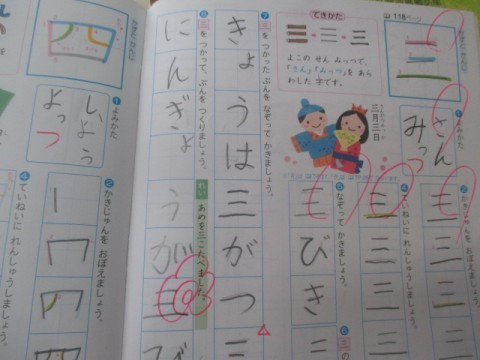 できかた
118ページ
三
よこの せん みっつで、
「さん」「みっつ」を あら
わした 字です。
三月三日
みほん かんじ
三
1 よみかた
さん
みっつ
2 かきじゅんを おぼえましょう。
三
三
三
4 ていねいに れんしゅうしましょう。
三
三
三
5 なぞって かきましょう。
三
びき
6 三の
7 三を つかった ぶんを なぞって かきましょう。
きょうは三がつ
8 三を つかって、ぶんを つくりましょう。
れい あめを三こたべました。
にんぎょうが三
四
1 よみかた
し
よう
よっつ
2 かきじゅんを おぼえましょう。
4 ていねいに れんしゅうしましょう。